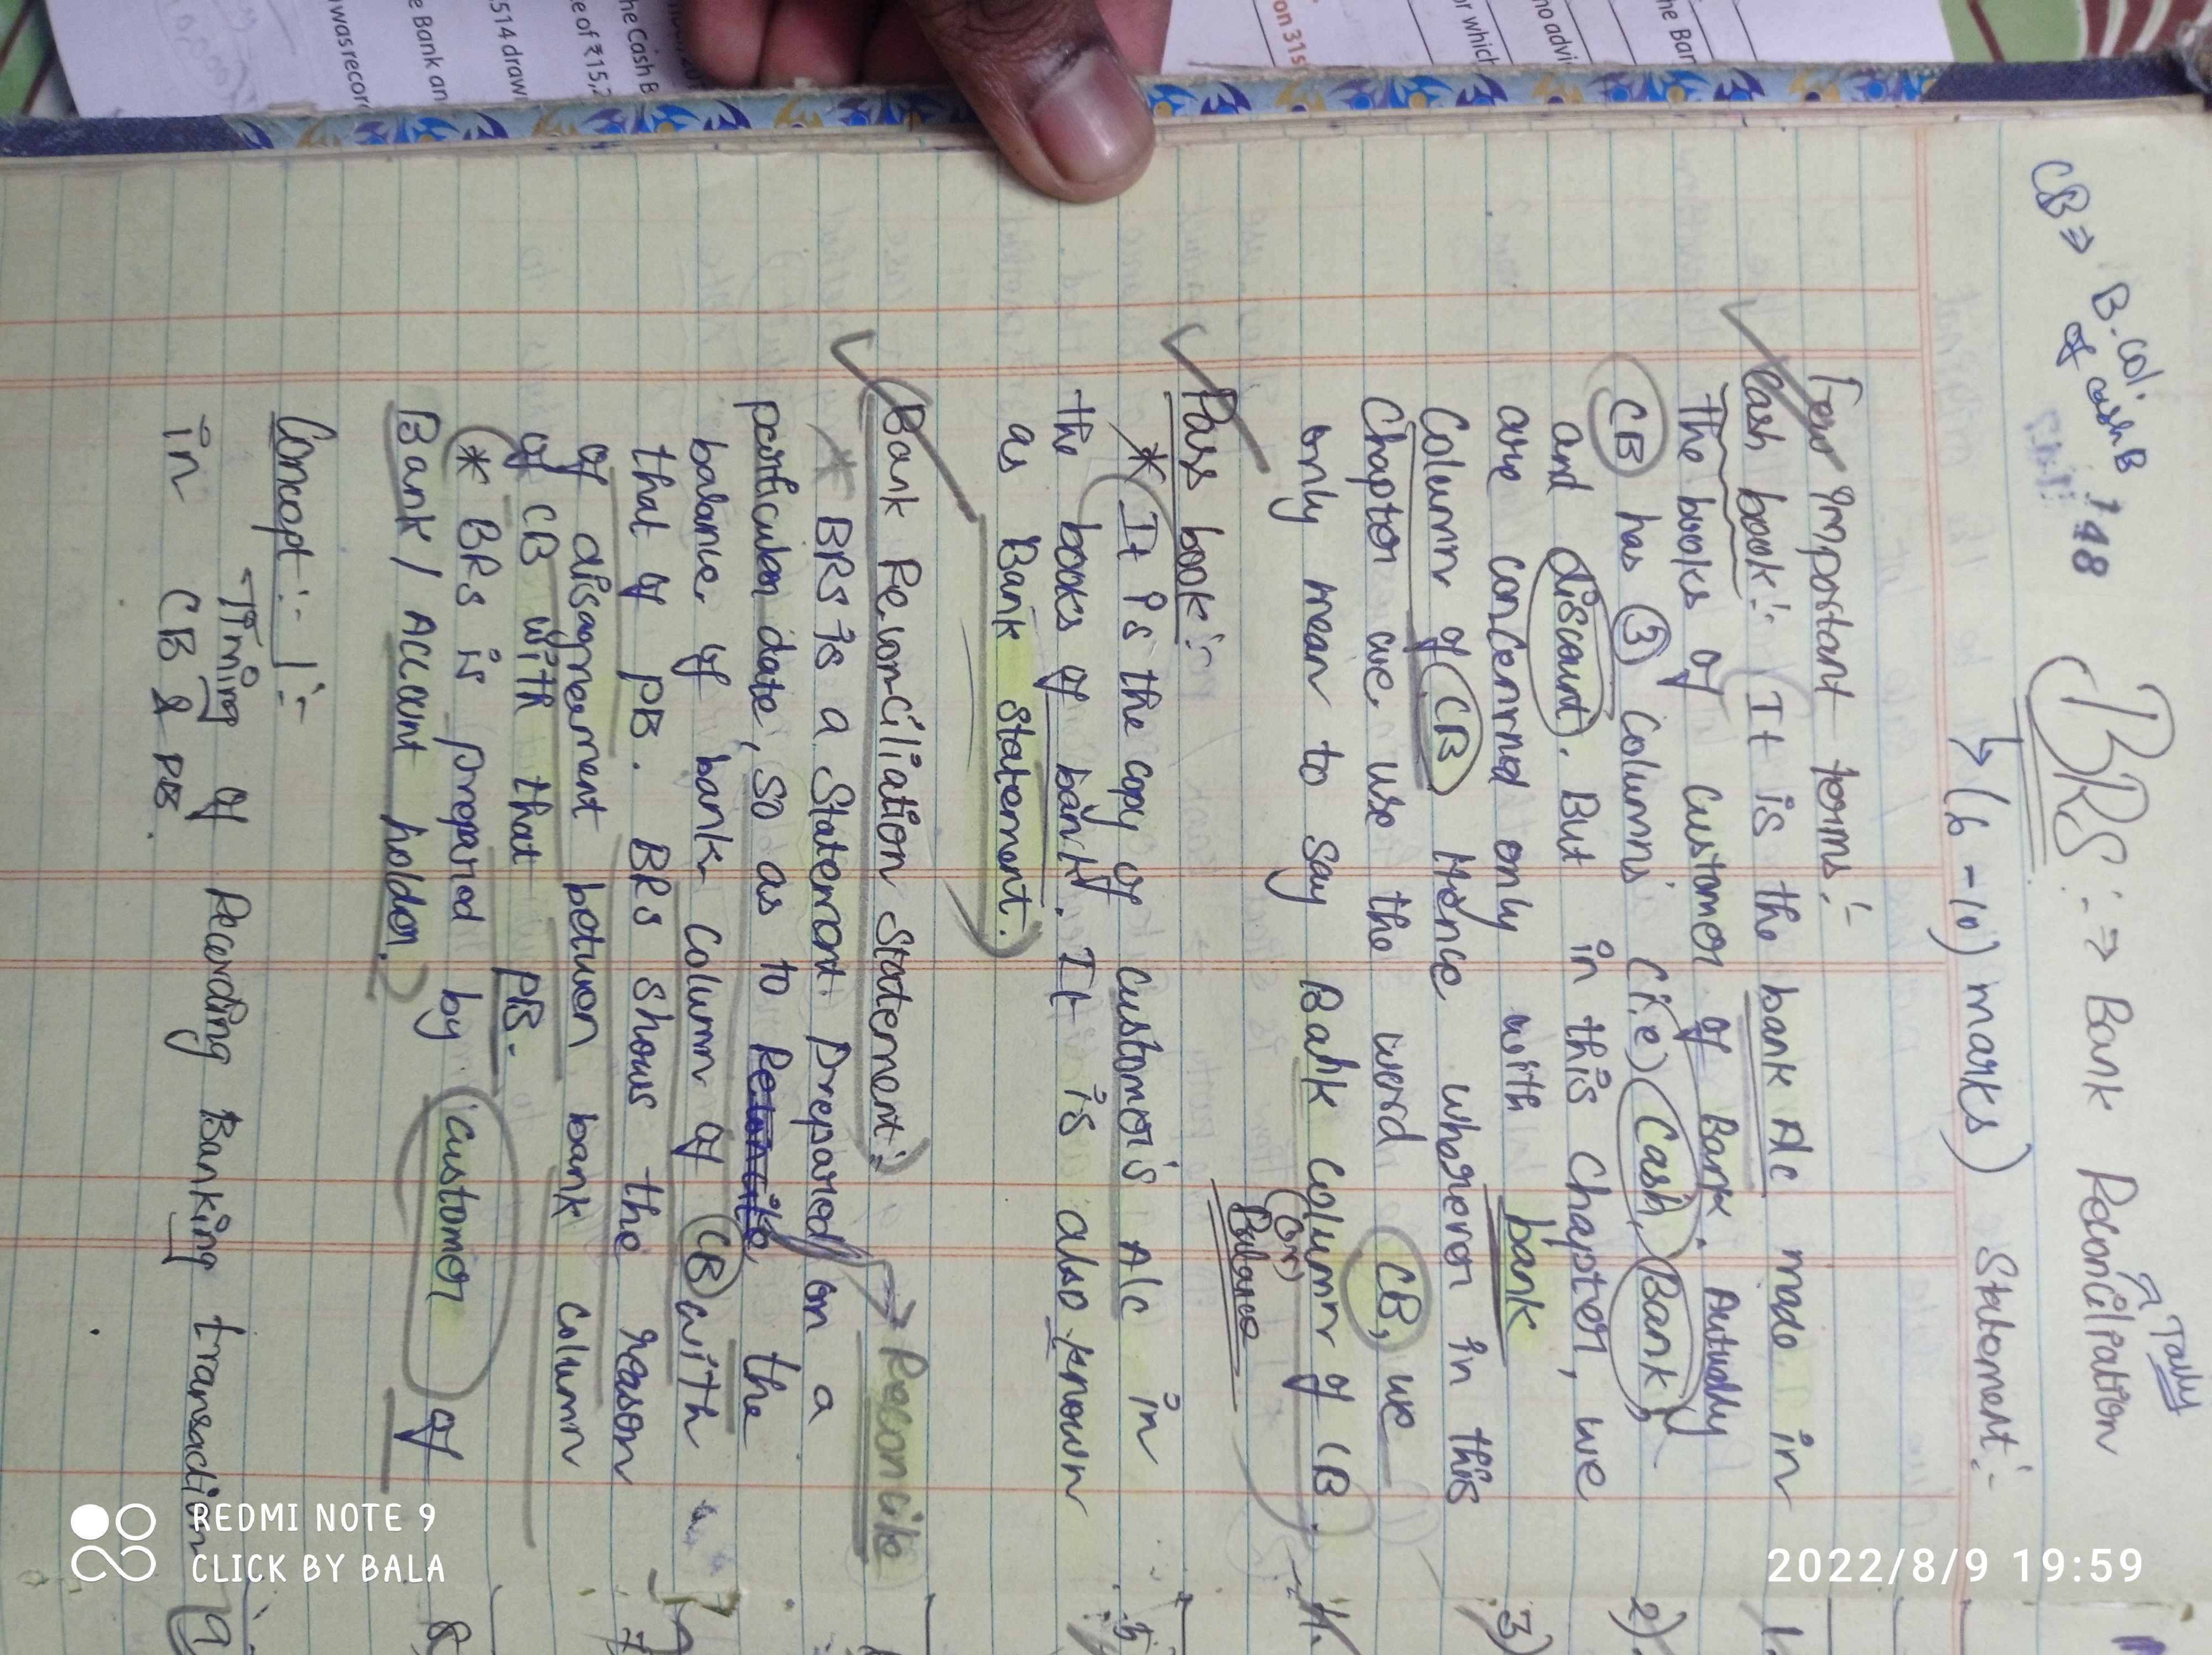 CB ⇒ B.Col
of cash B
148
Tally
BRS :- ⇒ Bank Reconciliation
Statement :-
↳ (6 - 10) marks)
Few important terms :-
Cash book :- It is the bank A/c made in
the books of customer of Bank. Actually
CB has 3 columns (i.e) Cash, Bank,
and discount. But in this Chapter, we
are concerned only with bank
Column of CB Hence wherever in this
Chapter we use the word CB, we
only mean to say Bank Column of CB.
(or)
Balance
Pass book :-
* It is the copy of customer's A/c in
the books of bank. It is also known
as Bank Statement.
Bank Reconciliation Statement :-
Reconcile
* BRS is a Statement Prepared on a
particular date, so as to the
balance of bank Column of CB with
that of PB. BRS shows the reason
of disagreement between bank column
of CB with that PB.
* BRS is prepared by customer of
Bank / Account holder.
Concept :- 1 :-
Timing of Recording Banking transaction
in CB & PB.
1.
2)
3)
4.
5
7
8
9
on 31s
or which
no advi
he Ban
he Cash B
e of ₹15,2
514 draw
e Bank an
was recor
REDMI NOTE 9
CLICK BY BALA
2022/8/9 19:59